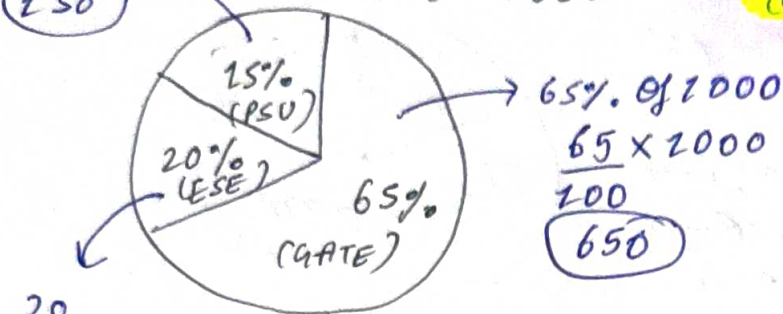 150
15%
(PSU)
20%
(ESE)
65%
(GATE)
65% of 1000
65 × 1000
100
650
20